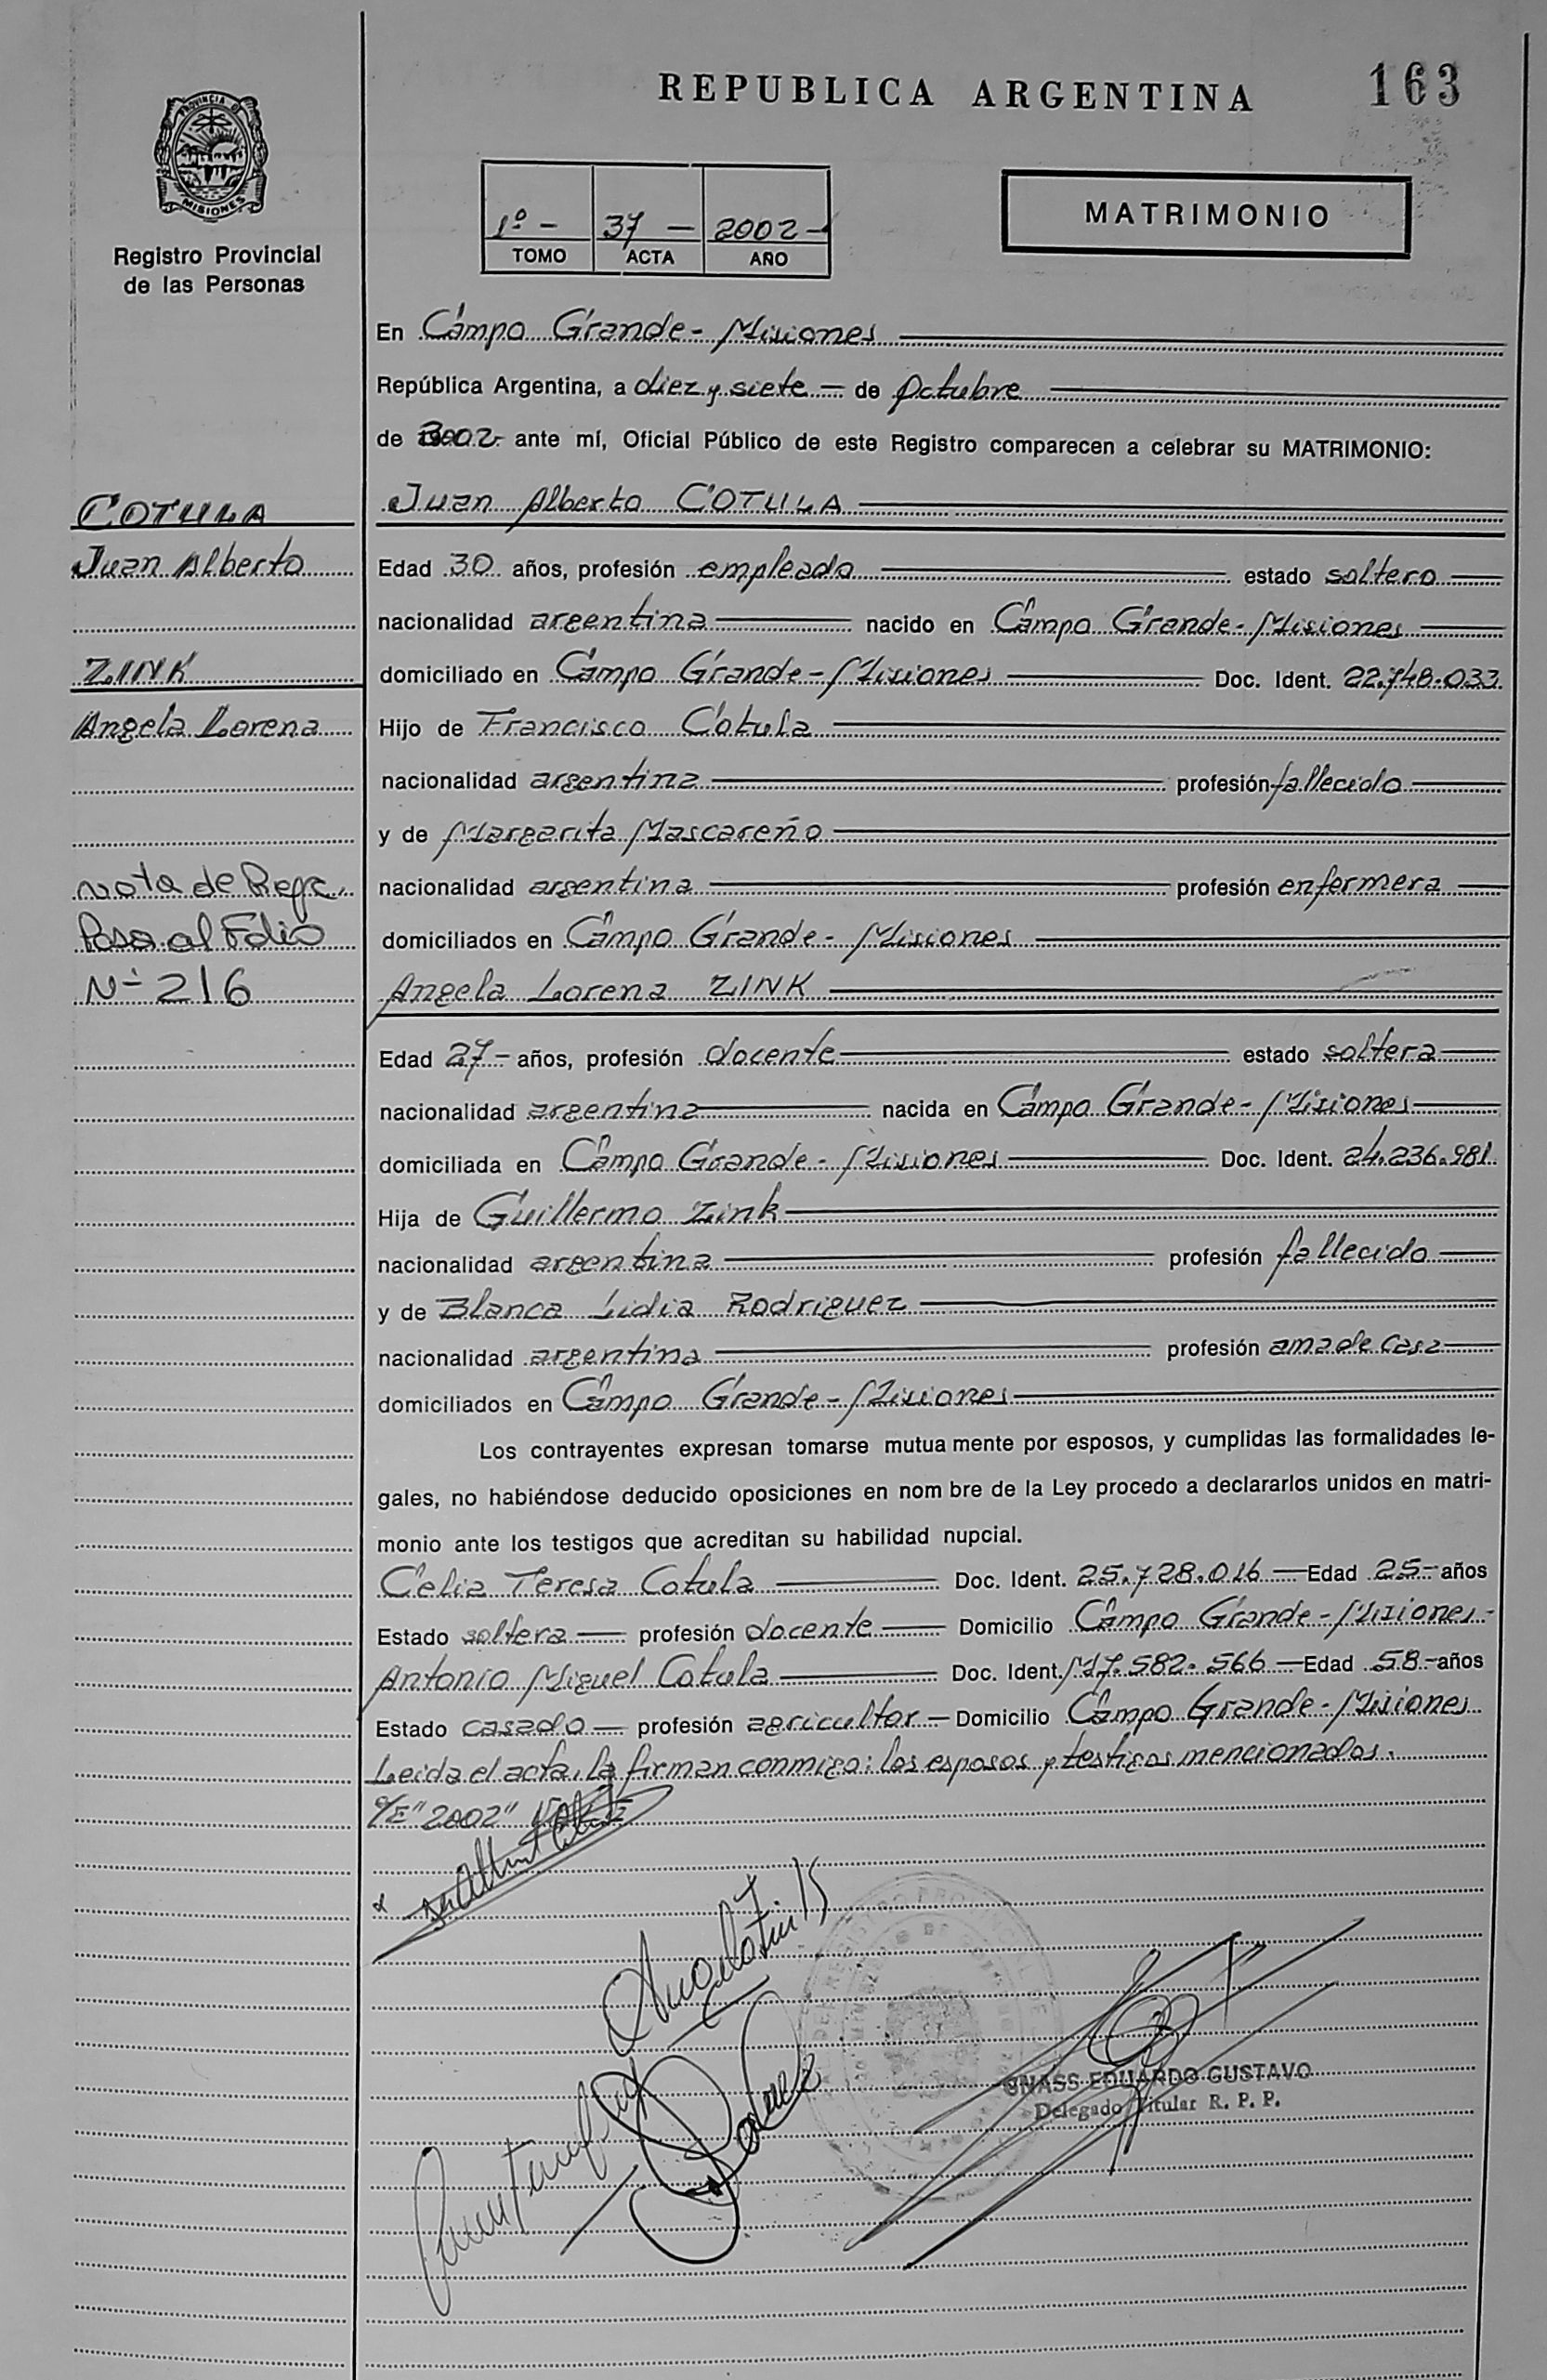 REPUBLICA ARGENTINA
163
PROVINCIA DE
MISIONES
Registro Provincial
de las Personas
1º - 37 - 2002 -
TOMO ACTA AÑO
MATRIMONIO
En Campo Grande - Misiones
República Argentina, a diez y siete - de octubre
de 2002 - ante mí, Oficial Público de este Registro comparecen a celebrar su MATRIMONIO:
COTULA
Juan Alberto
ZINK
Angela Lorena
Nota de Refe.
Pasa al Folio
Nº 216
Juan Alberto COTULA
Edad 30 años, profesión empleado estado soltero
nacionalidad argentina nacido en Campo Grande - Misiones
domiciliado en Campo Grande - Misiones Doc. Ident. 22.748.033
Hijo de Francisco Cotula
nacionalidad argentina profesión fallecido
y de Margarita Mascareño
nacionalidad argentina profesión enfermera
domiciliados en Campo Grande - Misiones
Angela Lorena ZINK
Edad 27 - años, profesión docente estado soltera
nacionalidad argentina nacida en Campo Grande - Misiones
domiciliada en Campo Grande - Misiones Doc. Ident. 24.236.981
Hija de Guillermo Zink
nacionalidad argentina profesión fallecido
y de Blanca Lidia Rodriguez
nacionalidad argentina profesión ama de casa
domiciliados en Campo Grande - Misiones
Los contrayentes expresan tomarse mutua mente por esposos, y cumplidas las formalidades le-
gales, no habiéndose deducido oposiciones en nom bre de la Ley procedo a declararlos unidos en matri-
monio ante los testigos que acreditan su habilidad nupcial.
Celia Teresa Cotula Doc. Ident. 25.728.016 - Edad 25 - años
Estado soltera profesión docente Domicilio Campo Grande - Misiones -
Antonio Miguel Cotula Doc. Ident. M7.582.566 - Edad 58 - años
Estado casado profesión agricultor - Domicilio Campo Grande - Misiones
Leida el acta, la firman conmigo: los esposos y testigos mencionados.
S/E "2002" Vale
GNASS EDUARDO GUSTAVO
Delegado Titular R. P. P.